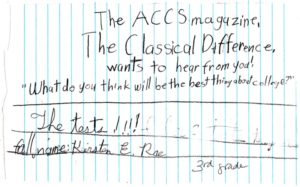 The ACCS magazine,
The Classical Difference,
wants to hear from you!
"What do you think will be the best thing about college?"
The tests !!!!
full name: Kirstin E. Rae
3rd grade